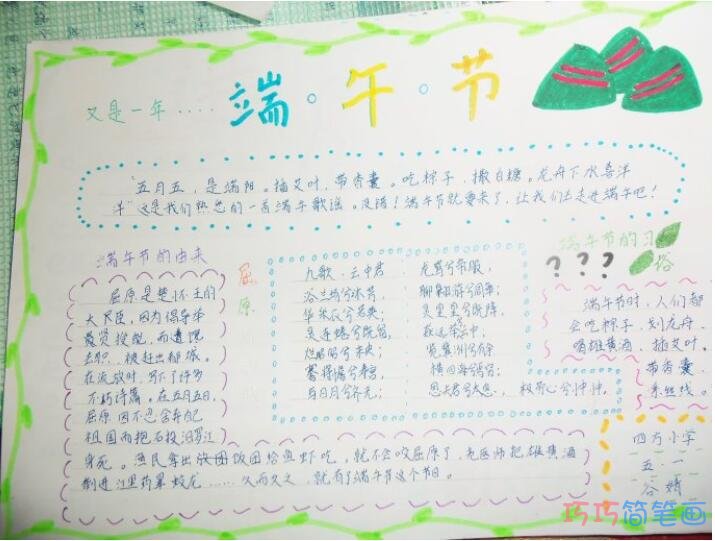 又是一年····
端·午·节
"五月五,是端阳。插艾叶,带香囊。吃粽子,撒白糖。龙舟下水喜洋
洋"这是我们熟悉的一首端午歌谣。没错!端午节就要来了,让我们去走进端午吧!
端午节的由来
屈原是楚怀王的
大臣,因为倡导举
贤授能,而遭馋
去职,被赶出都城。
在流放时,写下了许多
不朽诗篇。在五月五日,
屈原因不忍舍弃自己
祖国而抱石投汨罗江
身死。渔民拿出饭团给鱼虾吃,就不会咬屈原了,老医师把雄黄酒
倒进江里药晕蛟龙……久而久之,就有了端午节这个节日。
屈原
九歌·云中君
浴兰汤兮沐芳,
华采衣兮若英;
灵连蜷兮既留,
烂昭昭兮未央;
蹇将憺兮寿宫,
与日月兮齐光;
龙驾兮帝服,
聊翱游兮周章;
灵皇皇兮既降,
猋远举兮云中;
览冀州兮有余,
横四海兮焉穷;
思夫君兮太息,
极劳心兮忡忡。
端午节的习俗
???
端午节时,人们都
会吃粽子,划龙舟,
喝雄黄酒,插艾叶。
带香囊,
系丝线。
四方小学
五·一
谷婧
巧巧简笔画